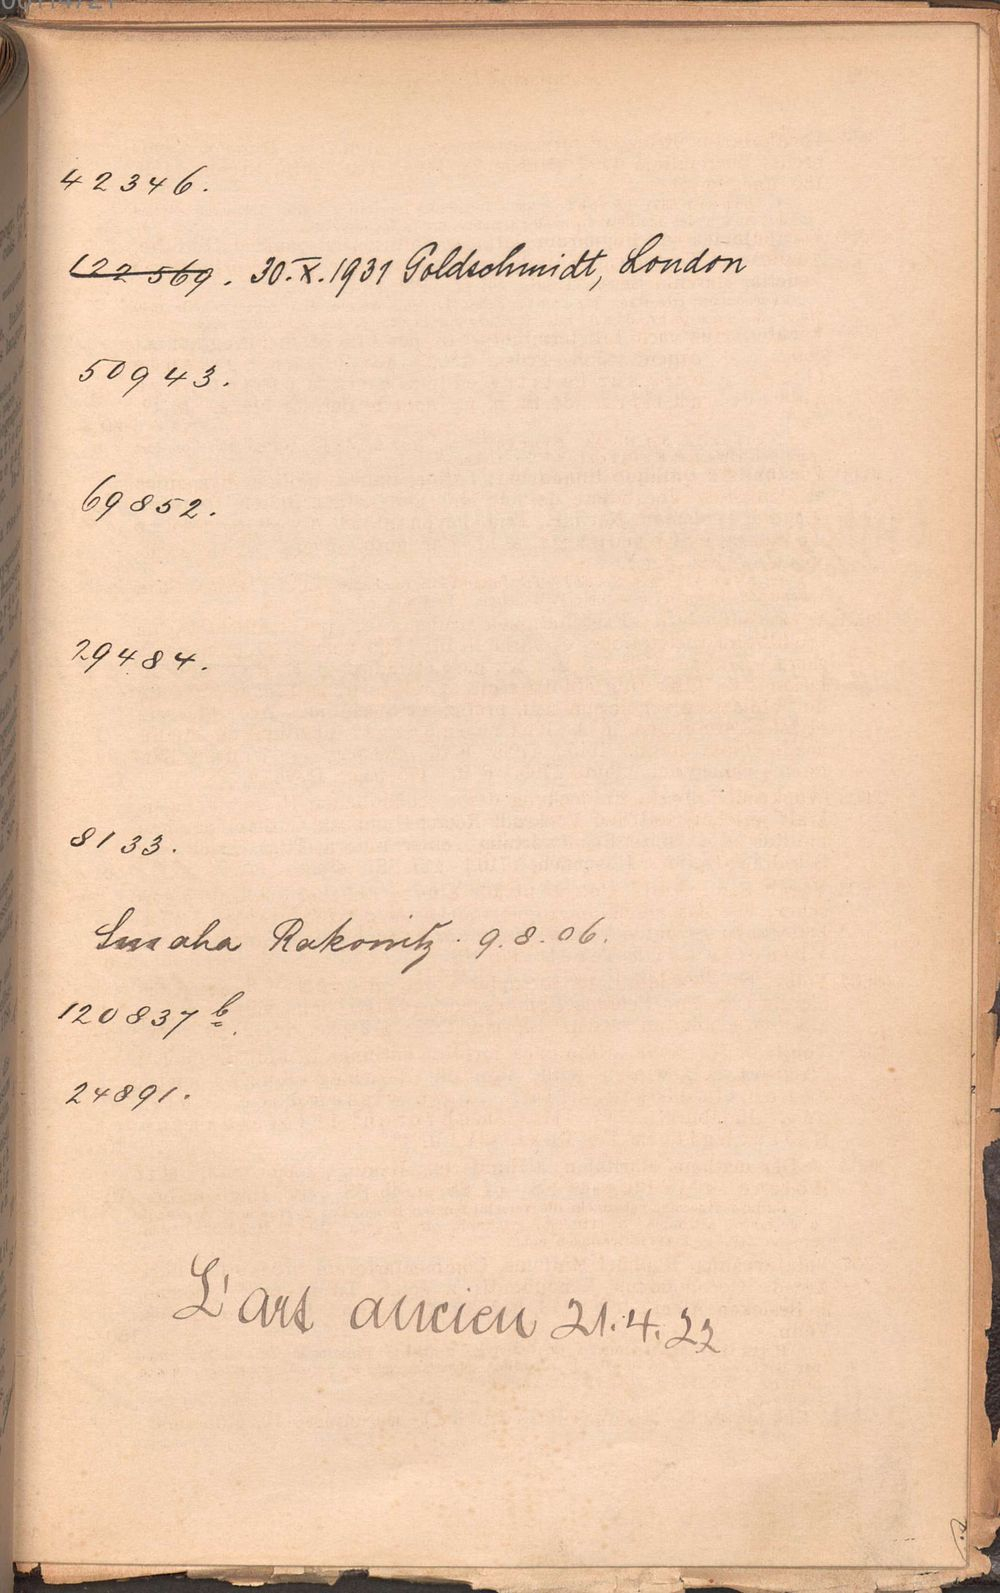 42346.
122569. 30.X.1931 Goldschmidt, London
50943.
69852.
29484.
8133.
Rakowitz. 9.8.06.
120837 b.
24891.
L'art ancien 21.4.22